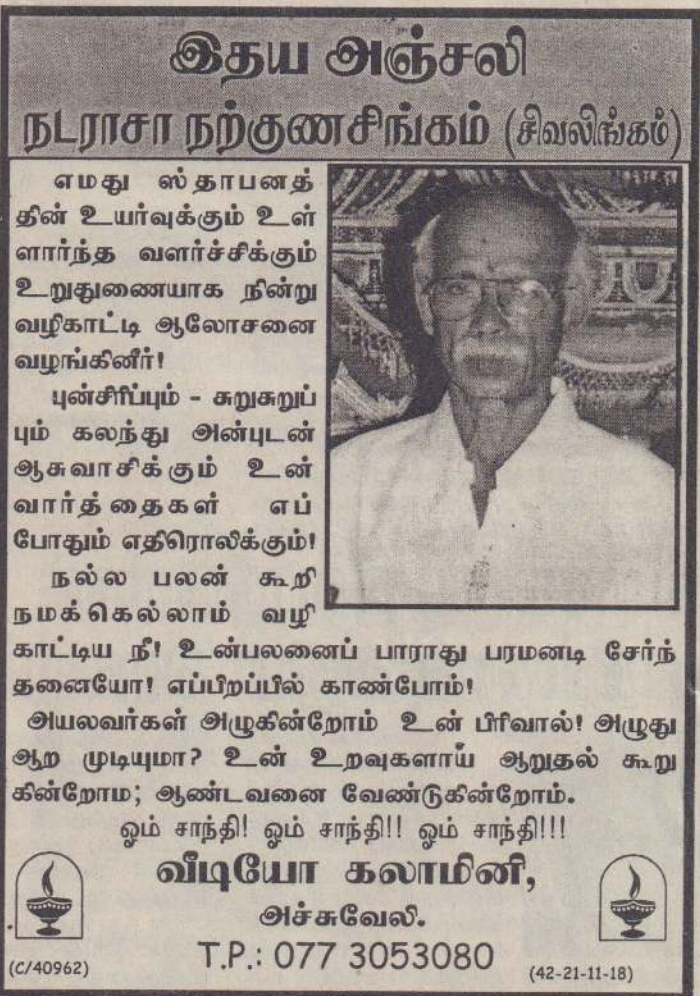 இதய அஞ்சலி
நடராசா நற்குணசிங்கம் (சிவலிங்கம்)
எமது ஸ்தாபனத்
தின் உயர்வுக்கும் உள்
ளார்ந்த வளர்ச்சிக்கும்
உறுதுணையாக நின்று
வழிகாட்டி ஆலோசனை
வழங்கினீர்!
புன்சிரிப்பும் - சுறுசுறுப்
பும் கலந்து அன்புடன்
ஆசுவாசிக்கும் உன்
வார்த்தைகள் எப்
போதும் எதிரொலிக்கும்!
நல்ல பலன் கூறி
நமக்கெல்லாம் வழி
காட்டிய நீ! உன்பலனைப் பாராது பரமனடி சேர்ந்
தனையோ! எப்பிறப்பில் காண்போம்!
அயலவர்கள் அழுகின்றோம் உன் பிரிவால்! அழுது
ஆற முடியுமா? உன் உறவுகளாய் ஆறுதல் கூறு
கின்றோம; ஆண்டவனை வேண்டுகின்றோம்.
ஓம் சாந்தி! ஓம் சாந்தி!! ஓம் சாந்தி!!!
வீடியோ கலாமினி,
அச்சுவேலி.
T.P.: 077 3053080
(C/40962)
(42-21-11-18)